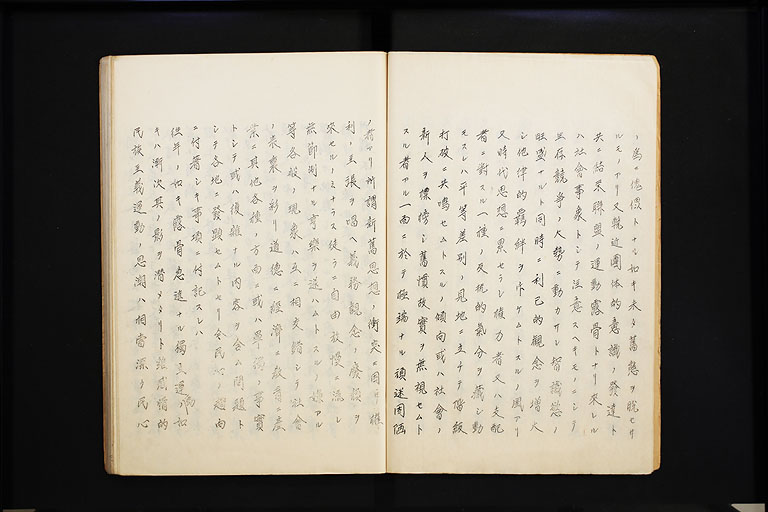 ノ為ニ傀儡トナル如キ未タ舊態ヲ脱セサ
ルモノアリ又輓近團体的意識ノ發達ト
共ニ結束聯盟ノ運動露骨トナリ来レル
ハ社會事象トシテ注意スヘキモノニシテ
生存競争ノ大勢ニ動カサレ智識慾ノ
旺盛ナルト同時ニ利己的觀念ヲ増大
シ他律的羈絆ヲ避ケムトスルノ風アリ
又時代思想ニ累セラレ権力者又ハ支配
者ニ對スル一種ノ反抗的氣分ヲ藏シ動
モスレハ平等差別ノ見地ニ立チテ階級
打破ニ共鳴セムトスルノ傾向或ハ社會ノ
新人ヲ標榜シ舊慣故實ヲ無視セムト
スル者アル一面ニ於テ極端ナル頑迷固陋
ノ者アリ所謂新舊思想ノ衝突ニ因リ権
利ノ主張ヲ唱ヘ義務觀念ノ廢頽ヲ
来セルノミナラス徒ラニ自由放慢ニ流レ
無節制ナル享樂ヲ遂ハムトスル様アル
等各般ノ現象ハ互ニ相交錯シテ社會
ノ表裏ヲ彩リ道徳ニ經濟ニ教育ニ産
業ニ其他各種ノ方面ニ或ハ単獨ノ事實
トシテ或ハ複雑ナル内容ヲ含ム問題ト
シテ各地ニ發現セムトセリ今民心ノ趨向
ニ付著シキ事項ニ付記スレハ
往年ノ如キ露骨急進ナル獨立運動ノ如
キハ漸次其ノ影ヲ潜メタリト雖感情的
民族主義運動ノ思潮ハ相當深ク民心